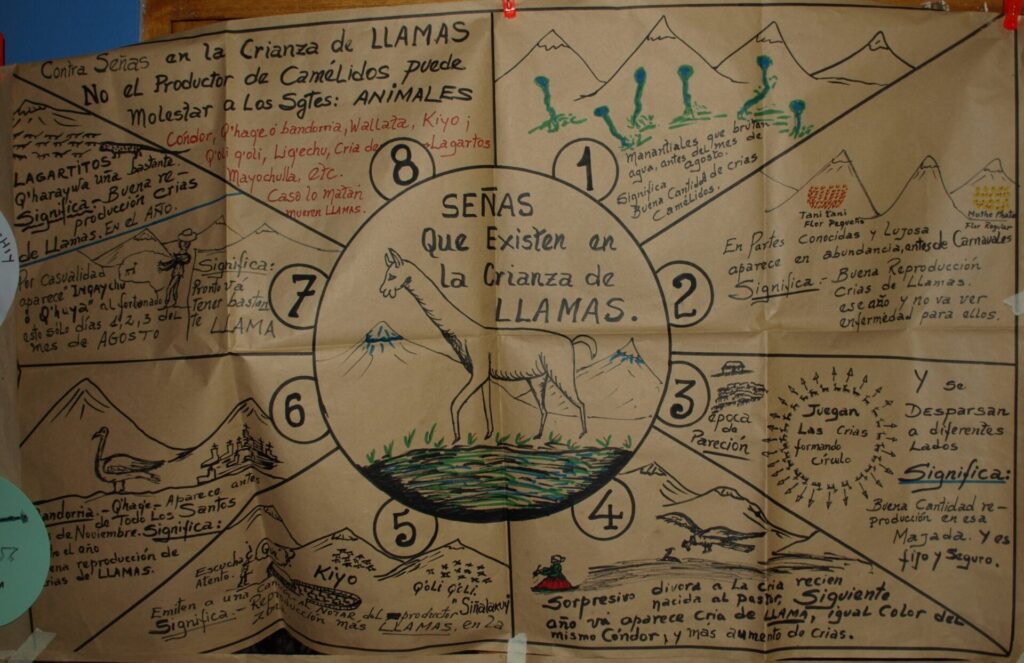 Contra Señas en la Crianza de LLAMAS
No el Productor de Camélidos puede
Molestar a Los Sgtes: ANIMALES
Condor, Q'hage ó bandorria, Wallata, Kiyo ¡
Q'oli q'oli, Liqechu, Cria de Lagartos
Mayochulla, etc.
Caso lo matan
mueren LLAMAS.
SEÑAS
Que Existen en
la Crianza de
LLAMAS.
1
Manantiales que brutan
agua, antes del mes de
Agosto.
Significa
Buena Cantidad de crias
Camélidos.
2
Tani tani
Flor Pequeña
Flor Regular
En Partes Conocidas y Lujosa
aparece en abundancia, antes de Carnavales
Significa.- Buena Reproducción
Crias de Llamas.
ese año y no va ver
enfermedad para ellos.
3
época
de
Pareción
Juegan
Las Crias
formando
Circulo
Y se
Desparsan
a diferentes
Lados
Significa:
Buena Cantidad re-
producción en esa
Majada. Y es
fijo y Seguro.
4
Sorpresivo divora a La cria recien
nacida al pastor, Siguiente
año va aparece Cria de LLAMA, igual Color del
mismo Cóndor, y mas aumento de Crias.
5
Escucha
Atento.
Kiyo
Q'oli Q'oli.
Emiten a una
del productor
Significa.-
mas LLAMAS, en La
6
Q'hage.- Aparece antes
de Todo Los Santos
de Noviembre. Significa:
en el año
reproducción de
crias de LLAMAS.
7
Por Casualidad
aparece "Inqaychu
ó Q'huya" al fortunado
esto solo dias 1, 2, 3 del
mes de AGOSTO
Significa:
Pronto va
Tener bastan
te LLAMA
8
LAGARTITOS
Q'haraywa uña bastante.
Significa.- Buena re-
producción crias
de Llamas. En el AÑO.